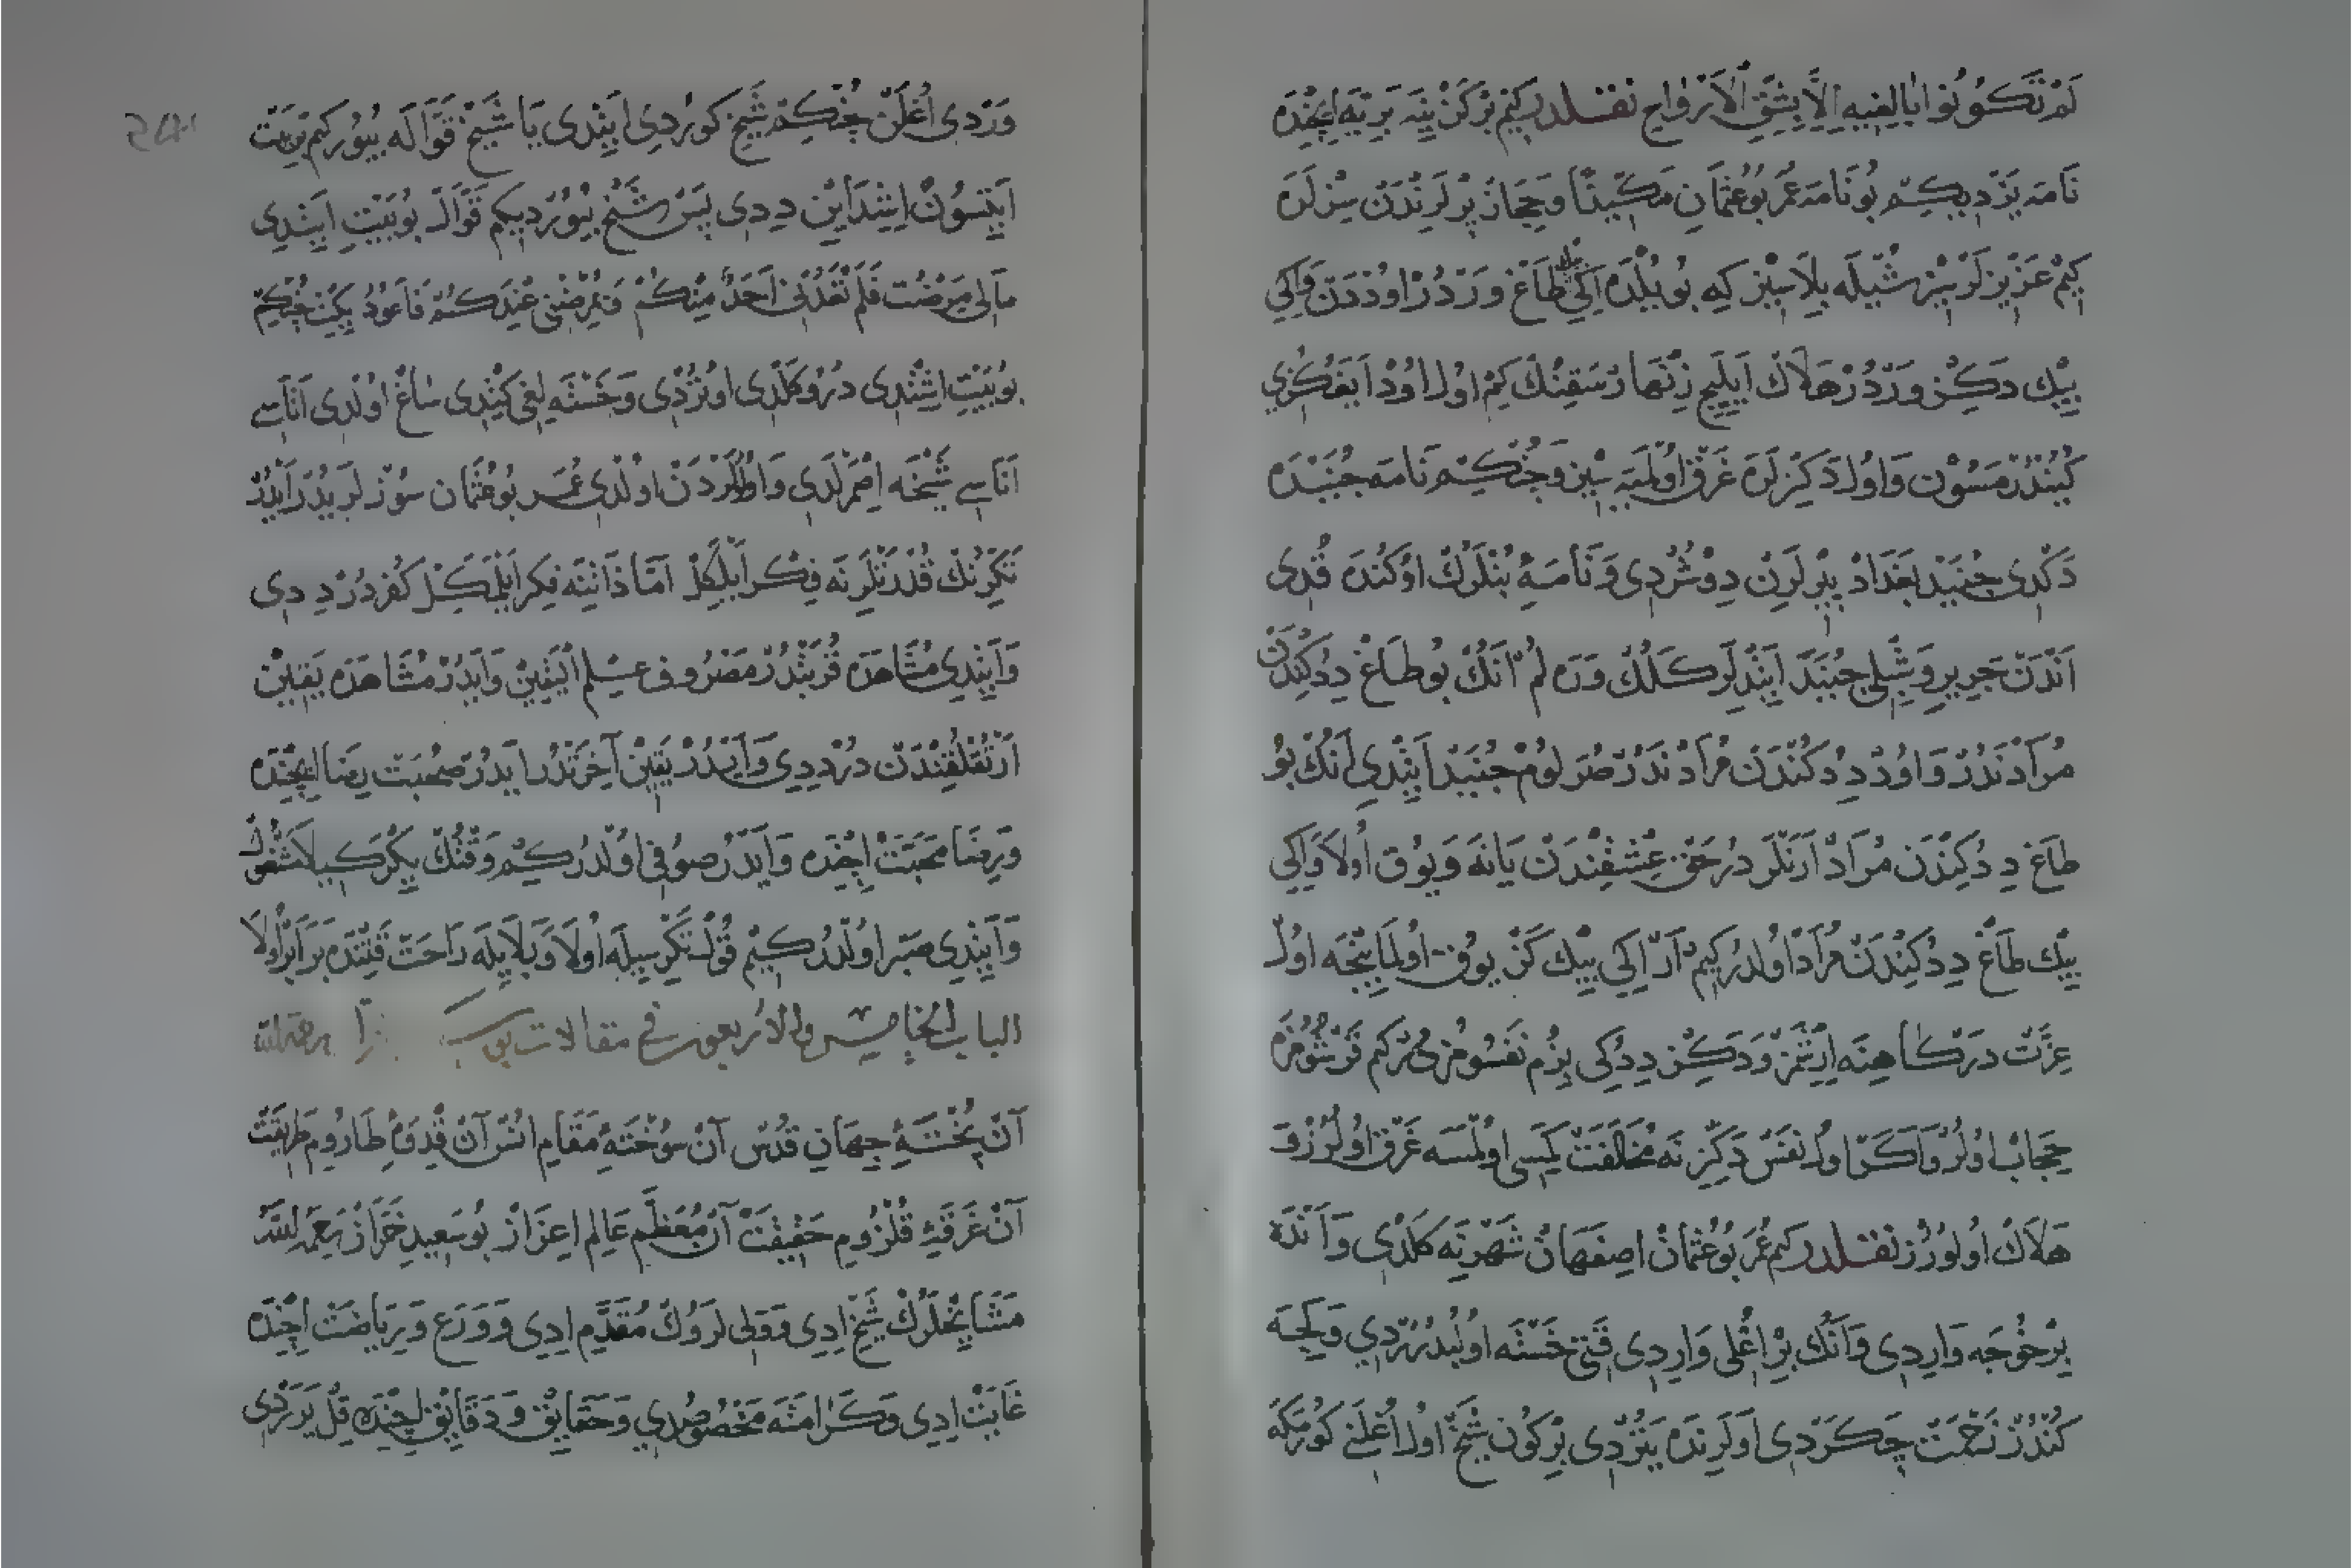 لَمْ تَكُونُوا بَالِغِيهِ اِلَّا بِشِقِّ الْاَرْوَاحِ نقلدر كيم بركز ينه بر نيه ايچنده
نامه يزديكم بو نامه عمر بو عثمان مكيدن و حجاز پرلرندن سزلره
كيم عزيزلرسيز شيله بلاسيز كه بو يلده اكى بيك طاغ وردر اوددن و اكى
بيك دكز وردر هلاك ايليجى زنهار سقنك كيم اول اود ايغكزى
كيندرمسون و اول دكزلره غرق اولميه سيز و چنكم نامه جنيده
دكدى جنيد بغداد پيرلرن دوشردى و نامه ئى بنلرك اوكنده قدى
اندن جرير و شبلى جنيد ايتديلر كلك وره لم انك بو طاغ ددكندن
مراد ندر و اود ددكندن مراد ندر صرلوم جنيد ايتدى انك بو
طاغ ددكندن مراد ارنلردر حق عشقندن يانه و يوق اولا و اكى
بيك طاغ ددكندن مراد اولدر كيم ار اكى بيك كز يوق اولماينجه اول
عزت دركاهنه ارشمز و دكز ددكى بزم نفسومزدر كم قرشومزه
حجاب اولر و اكر اول نفس دكزنه مخالفت كمسى اولمسه غرق اولورز و
هلاك اولورز نقلدر كم عمر بو عثمان اصفهان شهرنه كلدى و انده
بر خوجه واردى و انك بر اغلى واردى قتى خسته اولبدررردى و كجه
كندز زحمت چكردى اولرنده يتردى بر كون شيخ اول اغلنى كورمكه
وردى اغلن چنكم شيخ كوردى ايتدى يا شيخ قواله بيور كيم بر بيت
ايتسون اشداين ددى پس شيخ بيوردى كيم قوال بو بيت ايتدى
مالى مرضت فلم يعدنى احد منكم و يمرض عبدكم فاعود يكت چنكم
بو بيت اشتدى درو كلدى اوتردى و خسته لغى كتدى ساغ اولدى اتاسى
اناسى شيخه اصمرلدى و اولرردن اولدى عمر بو عثمان سوزلريدر ايدر
تكرنك قدرتلرنه فكر ايلكل اما ذاتينه فكر ايلمكل كفردر ددى
و ايتدى مشاهده قربتدر مصروف علم اليقين و ايدر مشاهده يقين
ارتقلغندن دردى و ايدر يقين آخرتدر ايدر صحبت رضا ايچنده
و رضا محبت ايچنده و ايدر صوفى اولدر كيم وقتنك بكركسيلا مشغول
و ايتدى صبر اولدر كيم قول تكرسيله اولا و بلايله راحت قتنده برابر اولا
الباب الخامس والاربعون فى مقالات بو رحمة الله
آن پخته جهان قدس آن سوخته مقام انس آن قدوه طاروم طريقت
آن غرقه قلزوم حقيقت آن معظم عالم اعزاز بو سعيد خراز رحمه الله
مشايخلرك شيخ ادى و ولى لروك مقدم ادى و ورع و رياضت ايچنده
غايت ادى و كرامته مخصوصدى و حقايق و دقايق ايچنده قل يرردى